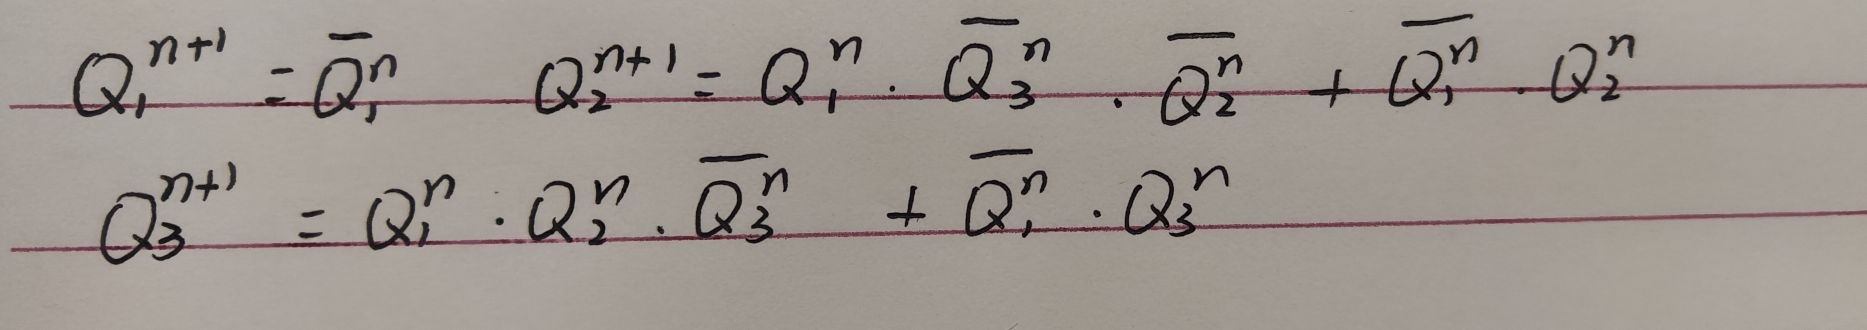 Q₁ⁿ⁺¹ = Q̅₁ⁿ Q₂ⁿ⁺¹ = Q₁ⁿ · Q̅₃ⁿ · Q̅₂ⁿ + Q̅₁ⁿ · Q₂ⁿ
Q₃ⁿ⁺¹ = Q₁ⁿ · Q₂ⁿ · Q̅₃ⁿ + Q̅₁ⁿ · Q₃ⁿ